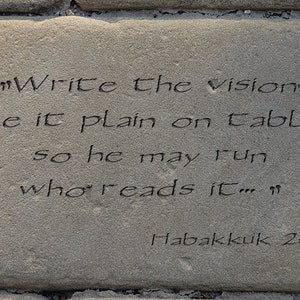 "Write the vision
it plain on
so he may run
who reads it... "
Habakkuk